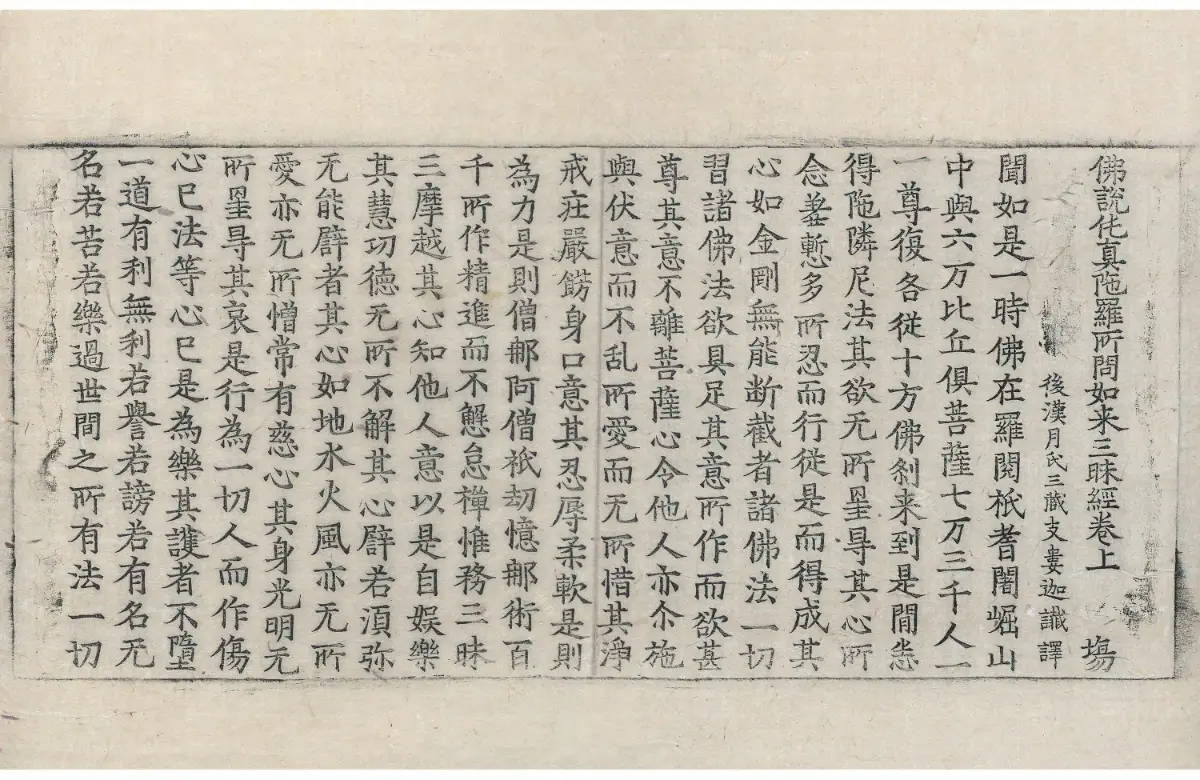 佛說伅真陁羅所問如来三昧經卷上　塲
後漢月氏三藏支婁迦讖譯
聞如是一時佛在羅閱祇耆闍崛山
中與六万比丘俱菩薩七万三千人一
一尊復各從十方佛刹来到是間悉
得陁隣尼法其欲无所罣㝵其心所
念羞慙多所忍而行從是而得成其
心如金剛無能断截者諸佛法一切
習諸佛法欲具足其意所作而欲甚
尊其意不離菩薩心令他人亦尒施
與伏意而不乱所愛而无所惜其淨
戒疘嚴餝身口意其忍辱柔軟是則
為力是則僧郍阿僧祇劫憶郍術百
千所作精進而不懈怠禪惟務三昧
三摩越其心知他人意以是自娛樂
其慧功德无所不解其心辟若湏弥
无能辟者其心如地水火風亦无所
愛亦无所憎常有慈心其身光明无
所罣㝵其哀是行為一切人而作傷
心巳法等心巳是為樂其護者不墮
一道有利無利若譽若謗若有名无
名若苦若樂過世間之所有法一切